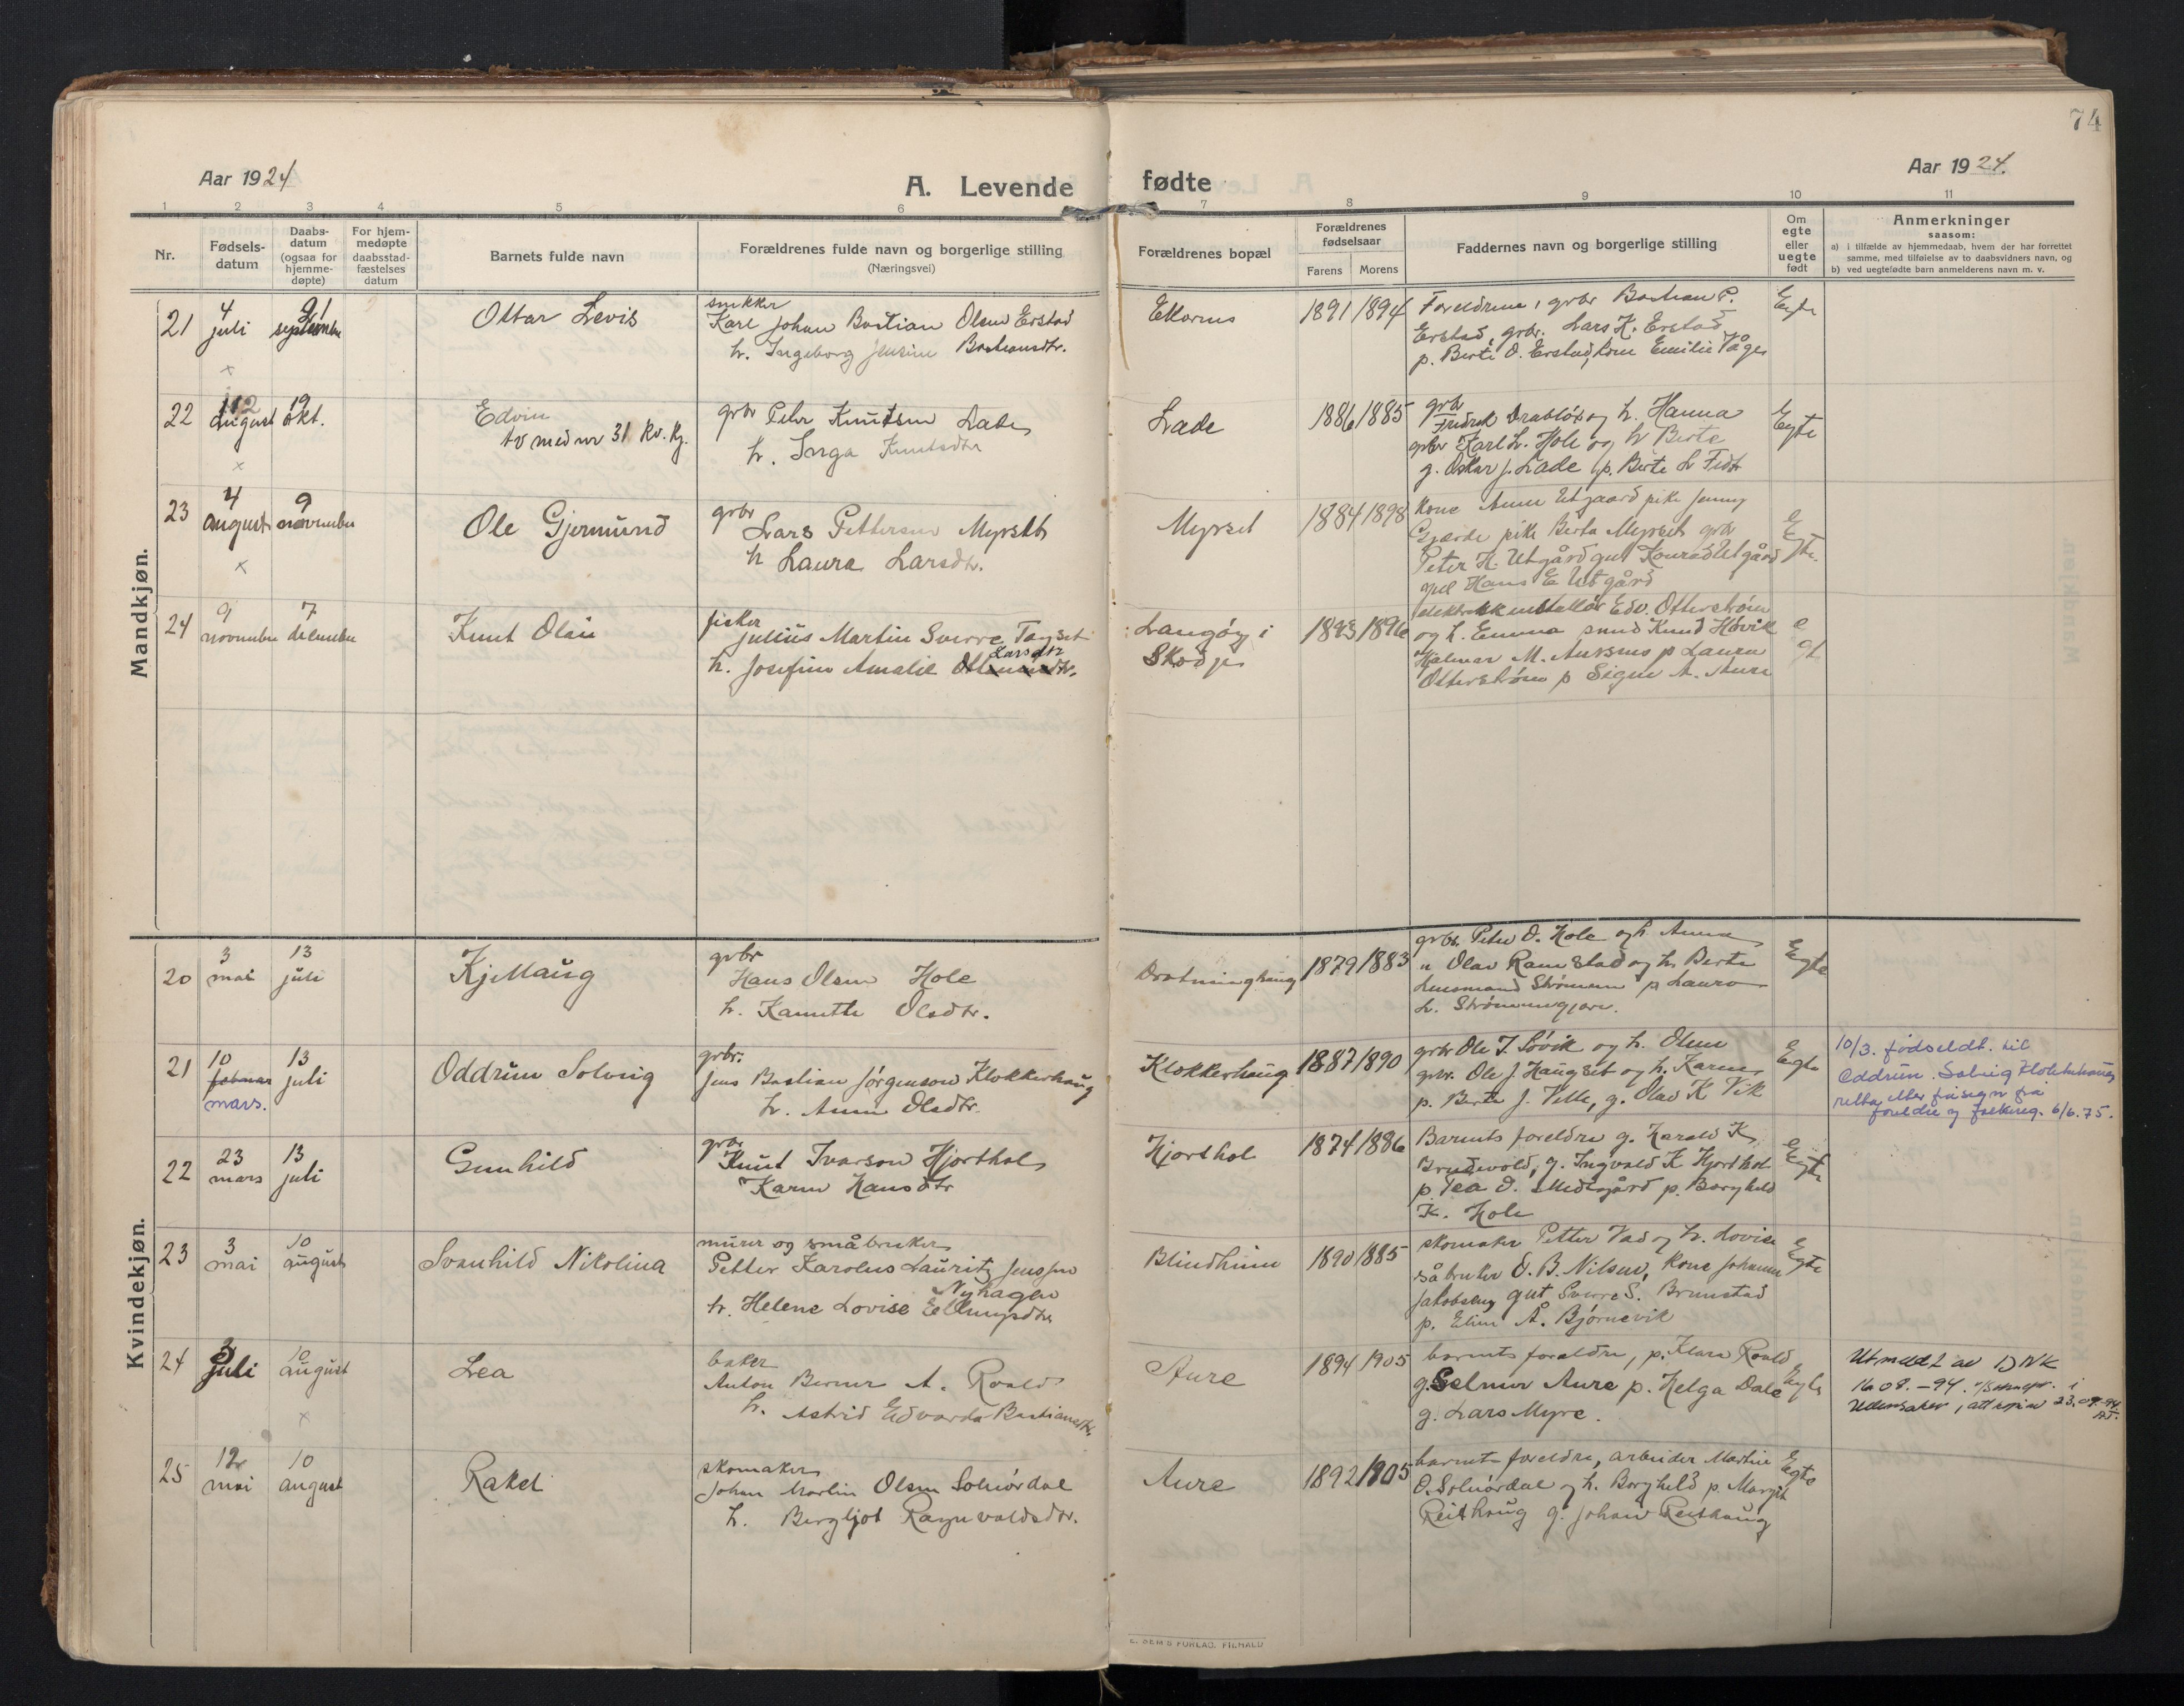 74
Aar 1924
A. Levende fødte
Aar 1924.
1 2 3 4 5 6 7 8 9 10 11
Nr.
Fødsels-
datum
Daabs-
datum
(ogsaa for
hjemme-
døpte)
For hjem-
medøpte
daabsstad-
fæstelses
datum
Barnets fulde navn
Forældrenes fulde navn og borgerlige stilling
(Næringsvei)
Forældrenes bopæl
Forældrenes
fødselsaar
Farens Morens
Faddernes navn og borgerlige stilling
Om
egte
eller
uegte
født
Anmerkninger
saasom:
a) i tilfælde av hjemmedaab, hvem der har forrettet
samme, med tilføielse av to daabsvidners navn, og
b) ved uegtefødte barn anmelderens navn m. v.
Mandkjøn.
21 4 juli 21 september
Ottar Levis
snekker
Karl Johan Bastian Olsen Erstad
h. Ingeborg Jensine Bastiansdtr.
Ekornes
1891 1894
Foreldrene, grbr Bastian P.
Erstad, grbr. Lars K. Erstad
p. Berte O. Erstad, kone Emilie Våge
Egte
x
22 august 19 okt.
Edvin
tv med nr 31 kv. kj.
grbr Peter Knutsen Lade
h. Inga Knutsdtr
Lade
1886 1885
grbr
Fredrik Drabløs og h. Hanna
grbr Karl L. Hole og h Berte
g. Oskar J. Lade p. Berte L
Egte
x
23 4 august 9 november
Ole Gjermund
grbr
Lars Pettersen Myrset
h Laura Larsdtr.
Myrset
1884 1898
kone Anne Utgaard pike Jenny
Gjærde pike Berta Myrset grbr
Peter H. Utgård gut Konrad Utgård
Hans E Utgård
Egte.
x
24 9 november 7 desember
Knut Olai
fisker
Julius Martin Sverre Tapset
Larsdtr
h. Josefine Amalie
Langöy i
Skodje
1893 1896
elektrisk installør Edv. Otterstrøm
og h. Emma smed Knud Høvik
Hjalmar M. Aursnes p Laura
Otterstrøm p Signe A. Aure
Kvindekjøn.
20 3 mai 13 juli
Kjellaug
grbr
Hans Olsen Hole
h. Kanutte Olsdtr.
Drotninghaug
1879 1883
grbr. Peter O. Hole og h. Anna
u Olav Ramstad og h. Berte
Lensmand Strømmen p Laura
L. Strømmegjære.
Egte
21 10 februar 13 juli
mars.
Oddrun Solveig
grbr.
Jens Bastian Jørgensen Klokkerhaug
h. Anne Olsdtr.
Klokkerhaug
1887 1890
grbr Ole J. Søvik og h. Oline
grbr. Ole J Haugset og h. Karen
p. Berte J. Velle, g. Olav K Vik
Egte
10/3. fødseldt. til
Oddrun Solveig Klokkerhaug
rettet etter
foreldre og folkereg. 6/6.75.
22 23 mars 13 juli
Gunhild
grbr
Knut Ivarson Hjorthol
Karen Hansdtr
Hjorthol
1874 1886
Barnets foreldre g. Harald K
Brudevold, g. Ingvald K Hjorthol
p. Tea O. Midtgård p. Borghild
K. Hole
Egte
23 3 mai 10 august
Svanhild Nikolina
murer og småbruker
Petter Karolus Lauritz Jensen
Nyhagen
h. Helene Lovise Ellingsdtr
Blindheim
1890 1885
skomaker Petter Vad og h. Lovise
småbruker O. B. Nilsen, kone Johanne
Jakobsen gut Sverre S. Brunstad
p. Eline Å. Bjørnevik
Egte
24 3 juli 10 august
Lea
baker
Anton Berner A. Roald
h. Astrid Edvarda Bastiansdtr.
Aure
1894 1905
barnets foreldre, p. Klara Roald
g. Selmer Aure p. Helga Dale
g. Lars Myre.
Egte
Utmeldt av DNK
16 08. -94.
23.09.-94.
x
25 12 mai 10 august
Rakel
skomaker
Johan Martin Olsen Solnørdal
h. Bergljot Ragnvaldsdtr.
Aure
1892 1905
barnets foreldre, arbeider Martin
O. Solnørdal og h. Borghild p. Margit
Reithaug g. Johan Reithaug
Egte
E. SEM'S FORLAG, FR.HALD